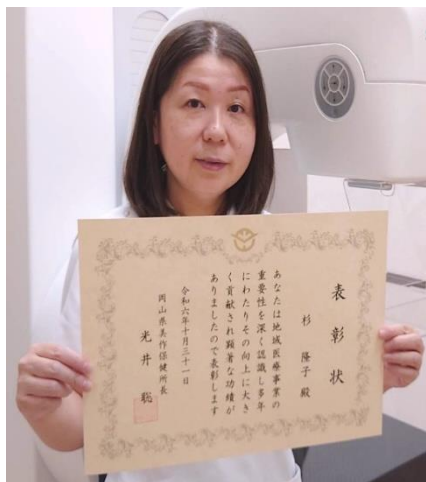 表彰状
杉 隆子 殿
あなたは地域医療事業の
重要性を深く認識し多年
にわたりその向上に大き
く貢献され顕著な功績が
ありましたので表彰します
令和六年十月三十一日
岡山県美作保健所長
光井 聡